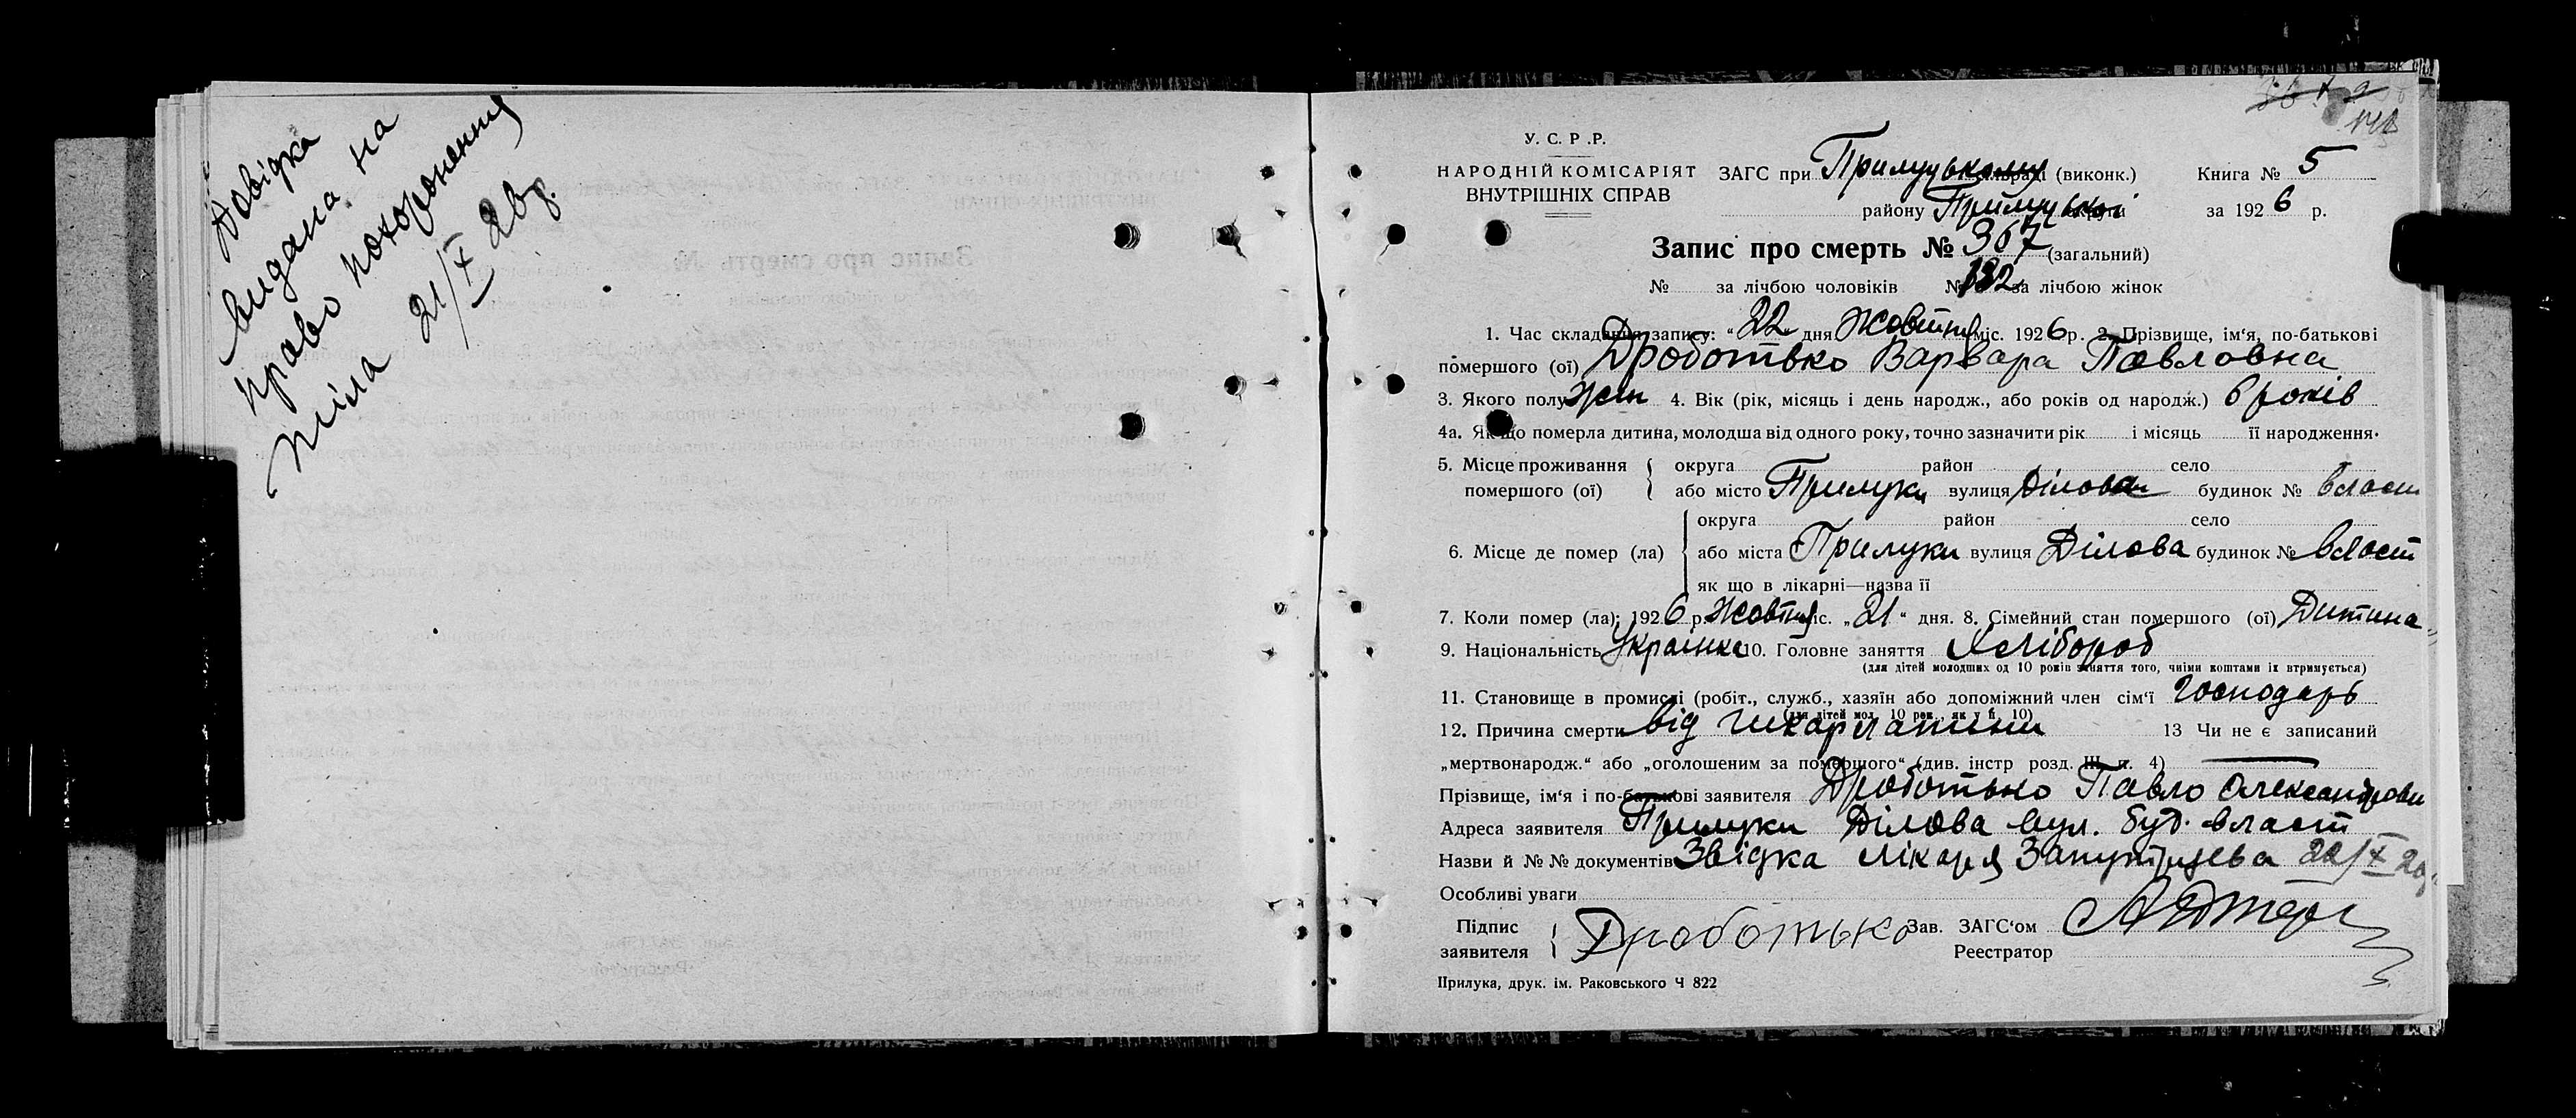 Довідка
видана на
право похоронення
тіла 21/X 26 р.
У. С. Р. Р.
НАРОДНІЙ КОМІСАРІЯТ
ВНУТРІШНІХ СПРАВ
ЗАГС при Прилуцькому (виконк.) Книга № 5
району Прилуцької округи за 1926 р.
Запис про смерть № 367 (загальний)
№ за лічбою чоловіків № 182 за лічбою жінок
1. Час складання запису: “22„ дня Жовтня міс. 1926 р. 2. Прізвище, ім‘я, по-батькові
померлого (ої) Дроботько Варвара Павловна
3. Якого полу жін 4. Вік (рік, місяць і день народж., або років од народж.) 6 років
4а. Як що померла дитина, молодша від одного року, точно зазначити рік і місяць її народження.
5. Місце проживання округа район село
помершого (ої) або місто Прилуки вулиця Ділова будинок № власн
округа район село
6. Місце де помер (ла) або міста Прилуки вулиця Ділова будинок № власт
як що в лікарні—назва її
7. Коли помер (ла); 1926 р. Жовтня міс. „21“ дня. 8. Сімейний стан помершого (ої) Дитина
9. Національність Українка 10. Головне заняття Хлібороб
(для дітей молодших од 10 років заняття того, чиїми коштами їх втримується)
11. Становище в промислі (робіт., служб., хазяїн або допоміжний член сім‘ї Господарь
(для дітей мол. 10 рок., як у п. 10)
12. Причина смерти від шкарлатини 13 Чи не є записаний
„мертвонародж.“ або „оголошеним за помершого“ (див. інстр розд. III п. 4)
Прізвище, ім‘я і по-батькові заявителя Дроботько Павло Олександрови
Адреса заявителя Прилуки Ділова вул. буд. власт
Назви й №№ документів Звідка лікаря 22/X 26
Особливі уваги
Підпис
заявителя Дроботько Зав. ЗАГС‘ом
Реестратор
Прилука, друк. ім. Раковського Ч 822